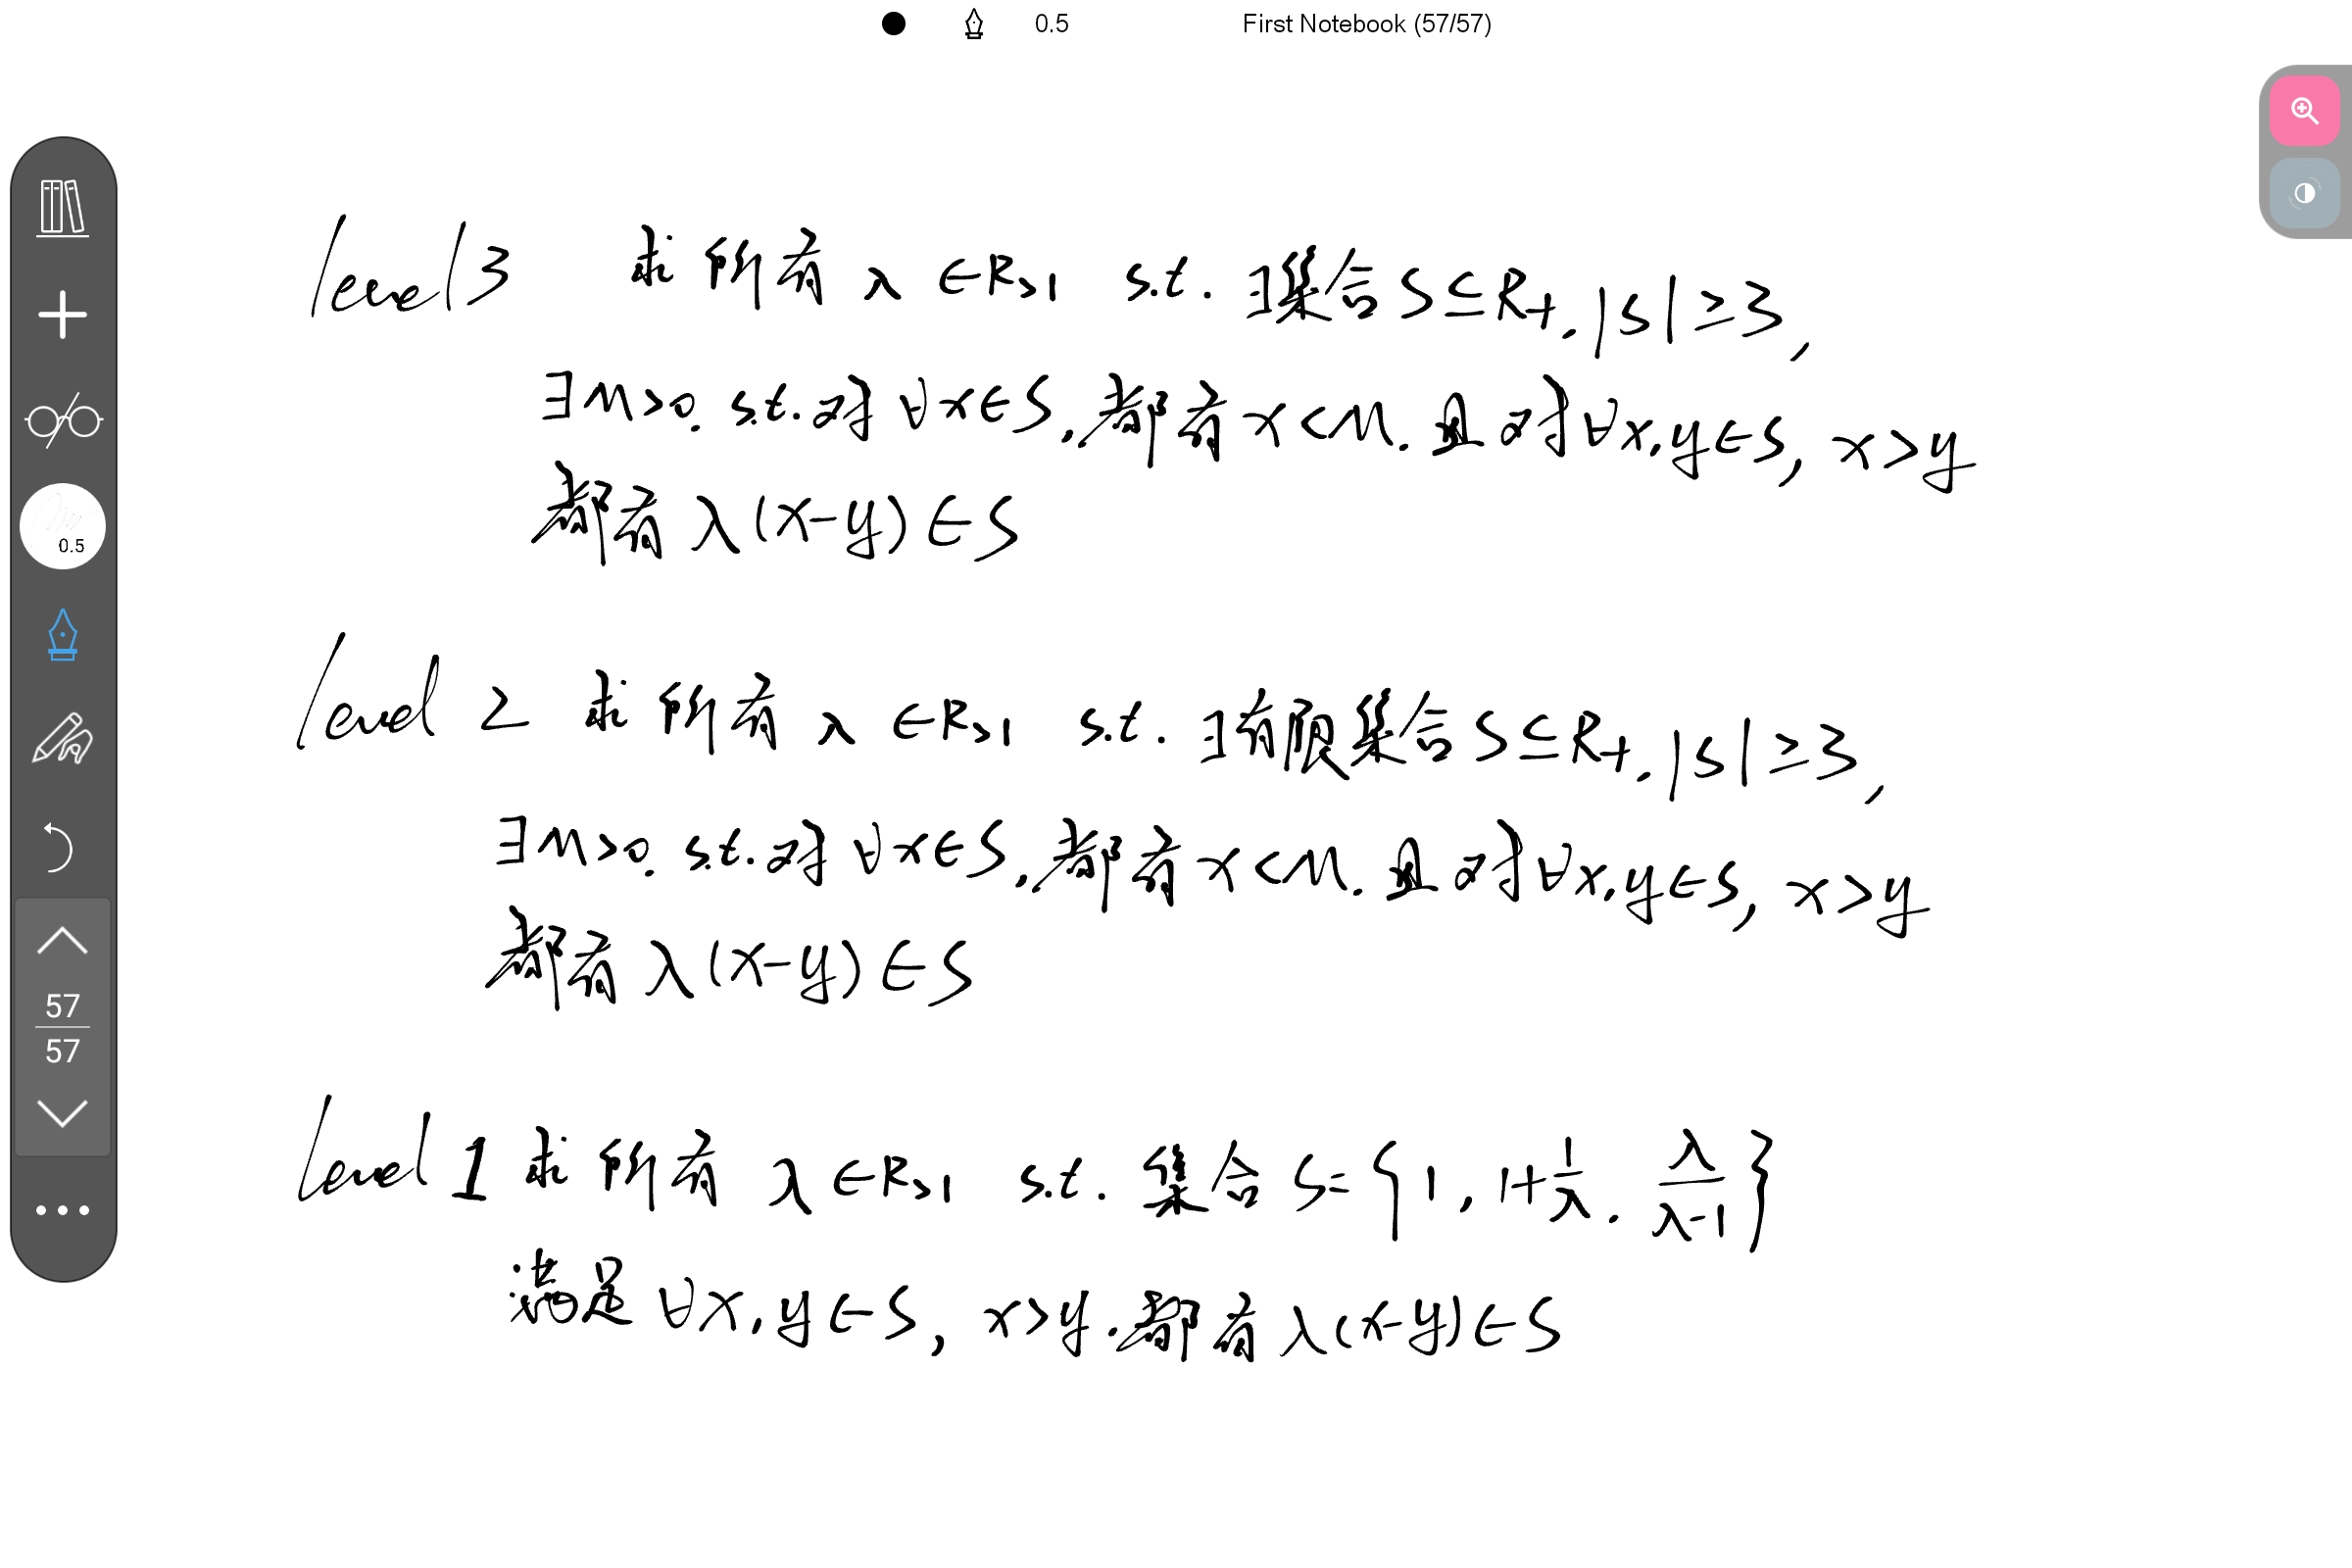 0.5 First Notebook (57/57)
level 3 求所有 λ ∈ R>1 s.t. ∃集合 S ⊆ R+, |S| ≥ 3,
∃M>0. s.t. 对 ∀x∈S, 都有 x<M. 且对 ∀x,y∈S, x>y
都有 λ(x-y)∈S
0.5
level 2 求所有 λ ∈ R>1 s.t. ∃有限集合 S ⊆ R+, |S| ≥ 3,
∃M>0. s.t. 对 ∀x∈S, 都有 x<M. 且对 ∀x,y∈S, x>y
都有 λ(x-y)∈S
57
57
level 1 求所有 λ ∈ R>1 s.t. 集合 S = {1, 1+1/λ, λ/(λ-1)}
满足 ∀x,y∈S, x>y. 都有 λ(x-y)∈S